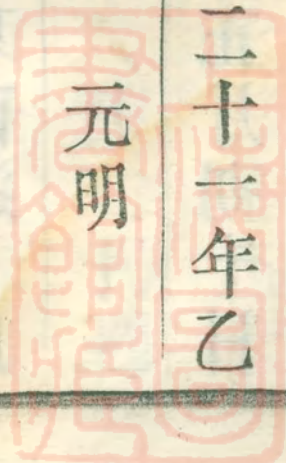 二十一年乙
元明